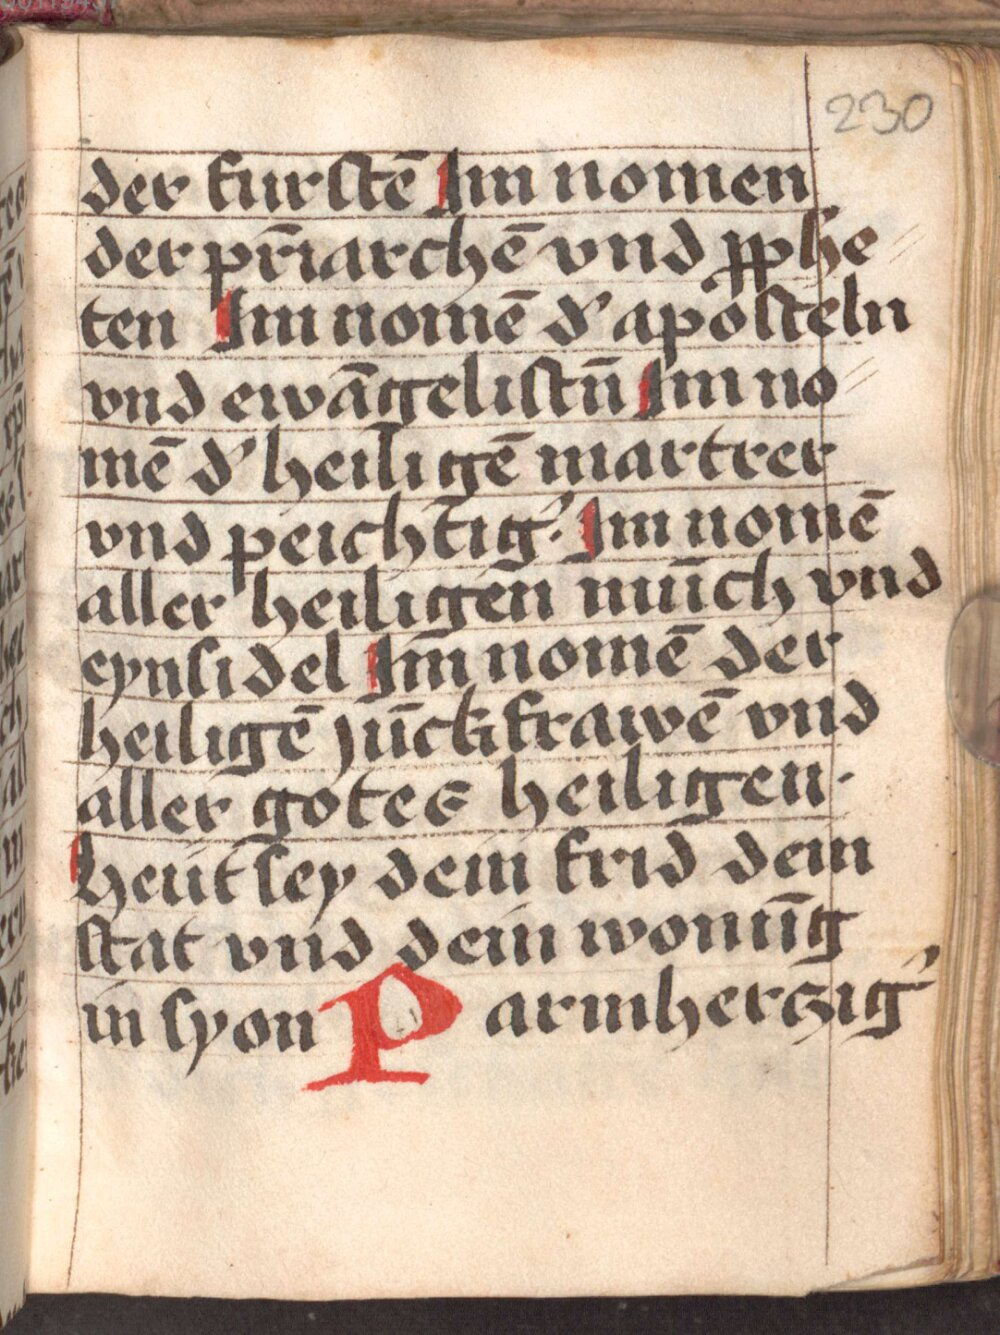 230
der furstē Im nomen
der pr̄iarchē vnd ꝓphe//
ten Im nomē dʼ apposteln
vnd ewāgelistn̄ Im no//
mē dʼ heiligē martrer
vnd peichtigʼ. Im nomē
aller heiligen mūīch vnd
eynsidel Im̄ nomē der
heiligē jūckfrawē vnd
aller gotes heiligen.
heut sey dein frid dem
stat vnd dein wonūg
in syon Parmherczigʼ